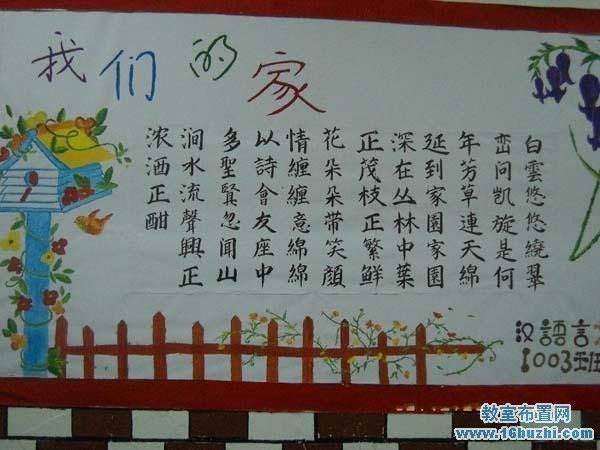 我们的家
白雲悠悠繞翠
峦问凯旋是何
年芳草連天綿
延到家園家園
深在丛林中葉
正茂枝正繁鮮
花朵朵带笑顔
情缠缠意綿綿
以詩會友座中
多聖賢忽闻山
涧水流聲興正
浓酒正酣
汉語言
1003班
教室布置网
www.16buzhi.com